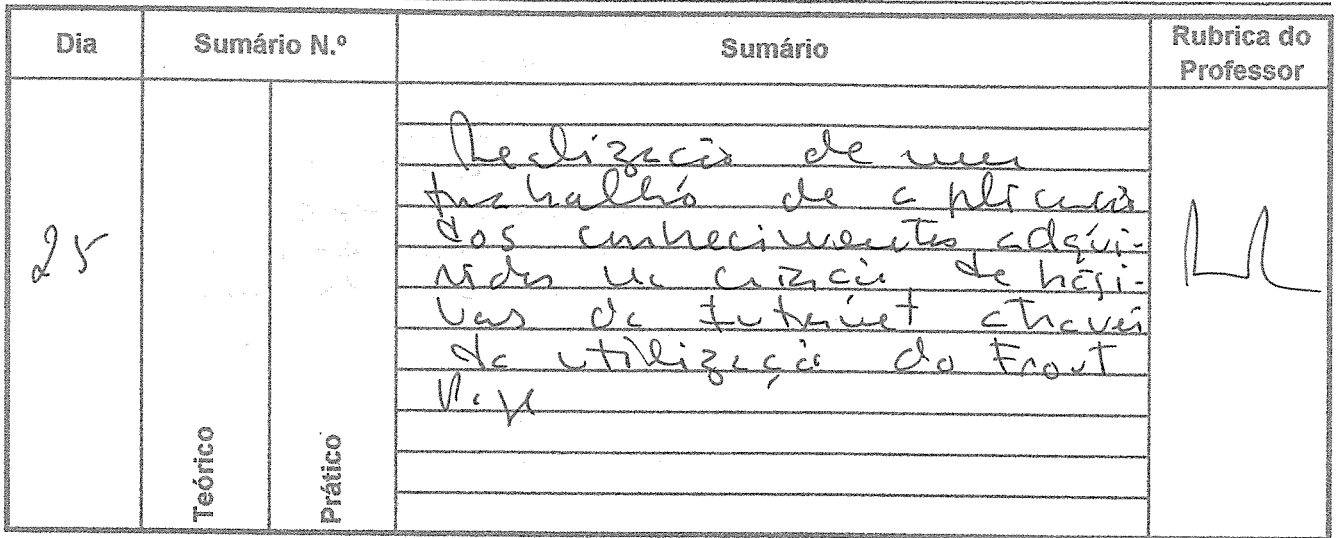 Dia Sumário N.º Sumário Rubrica do Professor
Teórico Prático
25
Realização de um
trabalho de aplicação
dos conhecimentos adqui-
ridos na criação de pági-
nas da Internet através
da utilização do Front
Page